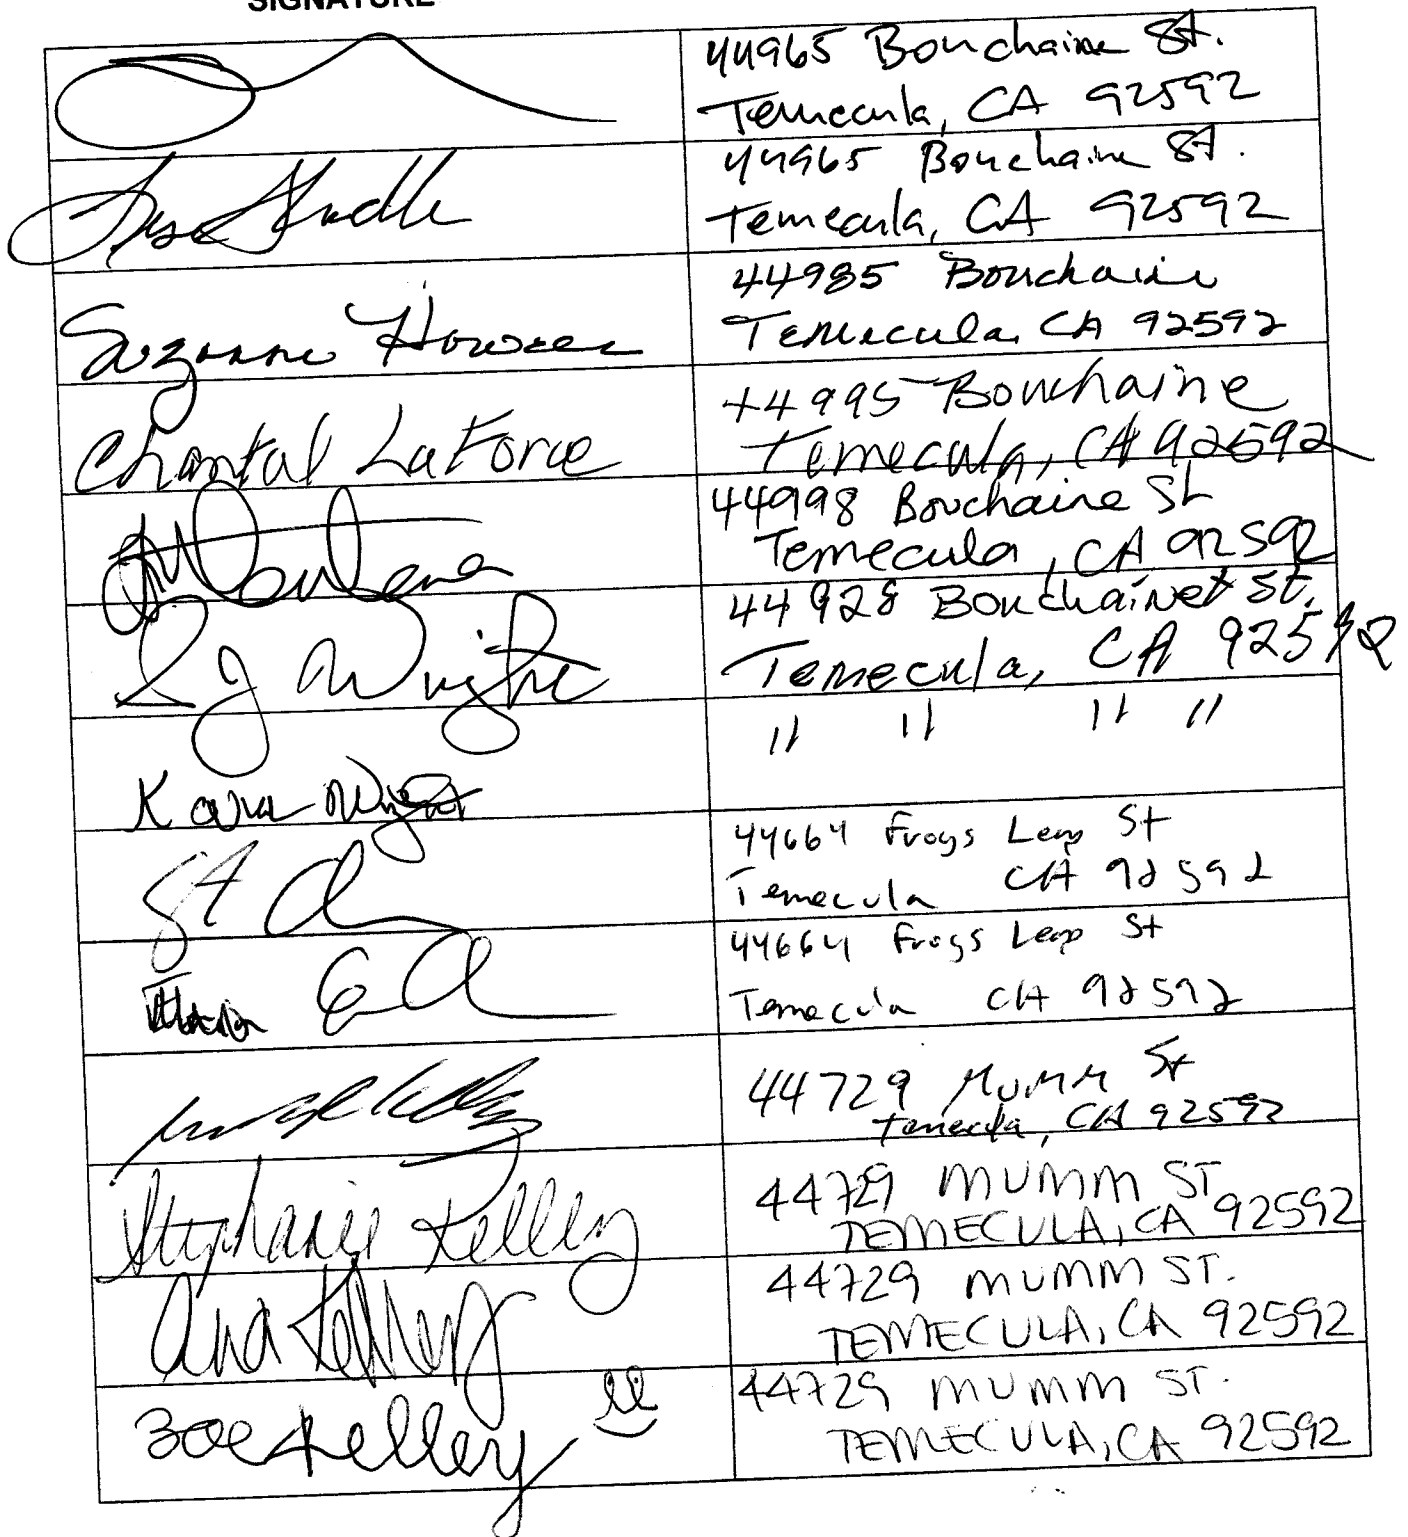 SIGNATURE
44965 Bouchaine St.
Temecula, CA 92592
44965 Bouchaine St.
Temecula, CA 92592
Suzanne
44985 Bouchaine
Temecula, CA 92592
Chantal LaForce
44995 Bouchaine
Temecula, CA 92592
44998 Bouchaine St
Temecula, CA 92592
RJ Wright
44928 Bouchaine St.
Temecula, CA 92592
Kara Wright
" " " "
44664 Frogs Leap St
Temecula CA 92592
44664 Frogs Leap St
Temecula CA 92592
44729 Mumm St
Temecula, CA 92592
Stephanie Kelley
44729 MUMM ST
TEMECULA, CA 92592
Ana Kelley
44729 MUMM ST.
TEMECULA, CA 92592
Zoe Kelley
44729 MUMM ST.
TEMECULA, CA 92592